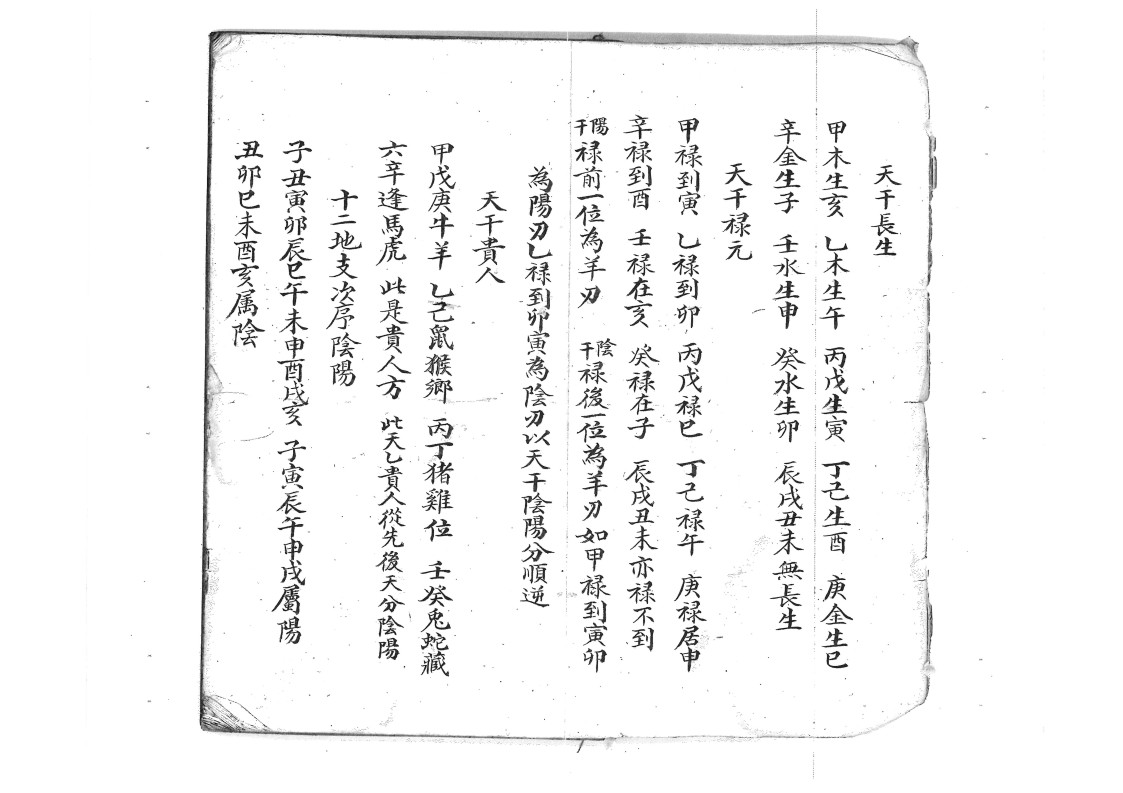 天干長生
甲木生亥 乙木生午 丙戊生寅 丁己生酉 庚金生巳
辛金生子 壬水生申 癸水生卯 辰戌丑未無長生
天干禄元
甲禄到寅 乙禄到卯 丙戊禄巳 丁己禄午 庚禄居申
辛禄到酉 壬禄在亥 癸禄在子 辰戌丑未亦禄不到
陽干禄前一位為羊刃 陰干禄後一位為羊刃如甲禄到寅卯
為陽刃乙禄到卯寅為陰刃以天干陰陽分順逆
天干貴人
甲戊庚牛羊 乙己鼠猴鄉 丙丁猪雞位 壬癸兎蛇藏
六辛逢馬虎 此是貴人方 此天乙貴人從先後天分陰陽
十二地支次序陰陽
子丑寅卯辰巳午未申酉戌亥 子寅辰午申戌屬陽
丑卯巳未酉亥属陰